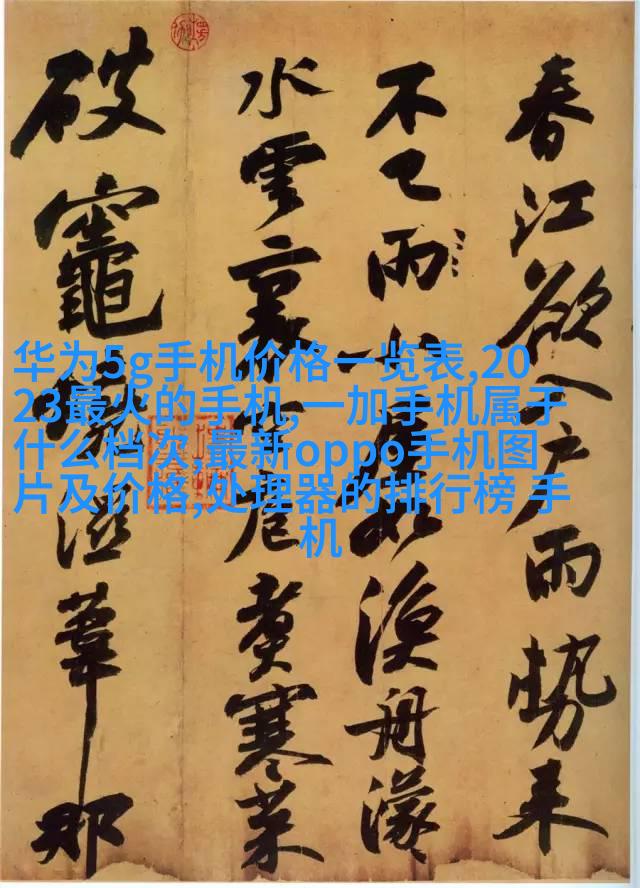 春江欲入戶雨勢来
不已雨小屋如漁舟濛
水雲裏空庖煮寒菜
破竈燒濕葦那
华为5g手机价格一览表,20
23最火的手机,一加手机属于
什么档次,最新oppo手机图
片及价格,处理器的排行榜 手
机